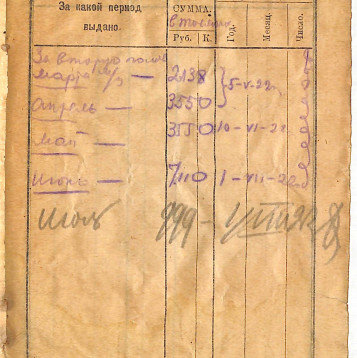 За какой период выдано.
СУММА.
в тысячах
Руб. К. Год. Месяц. Число.
За вторую полов.
Марта — 2138
5-V-22
Апрель — 3550
Май — 3550 10-VI-22
Июнь — 7110 1-VII-22
Июль 999-